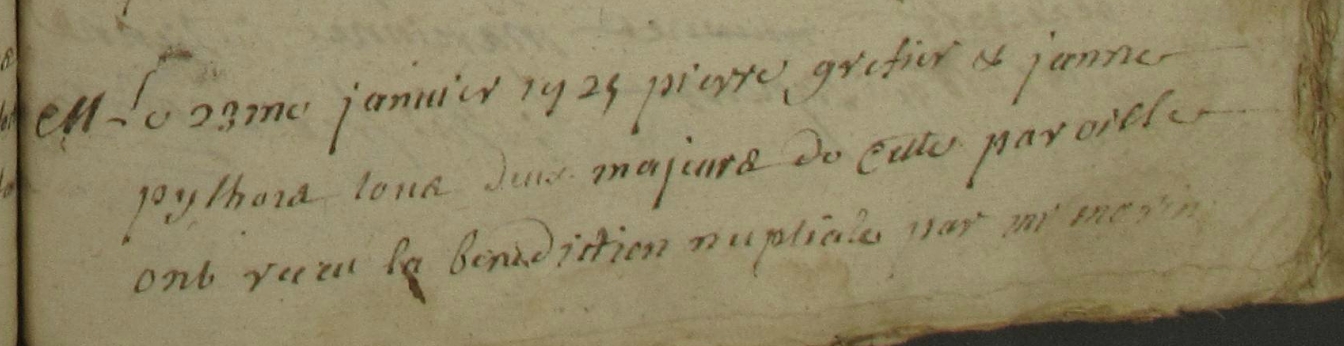 M Le 23me janvier 1725 pierre grefier & janne
pythois tous deux majeurs de cette paroisse
ont receu la benediction nuptiale par mr morin